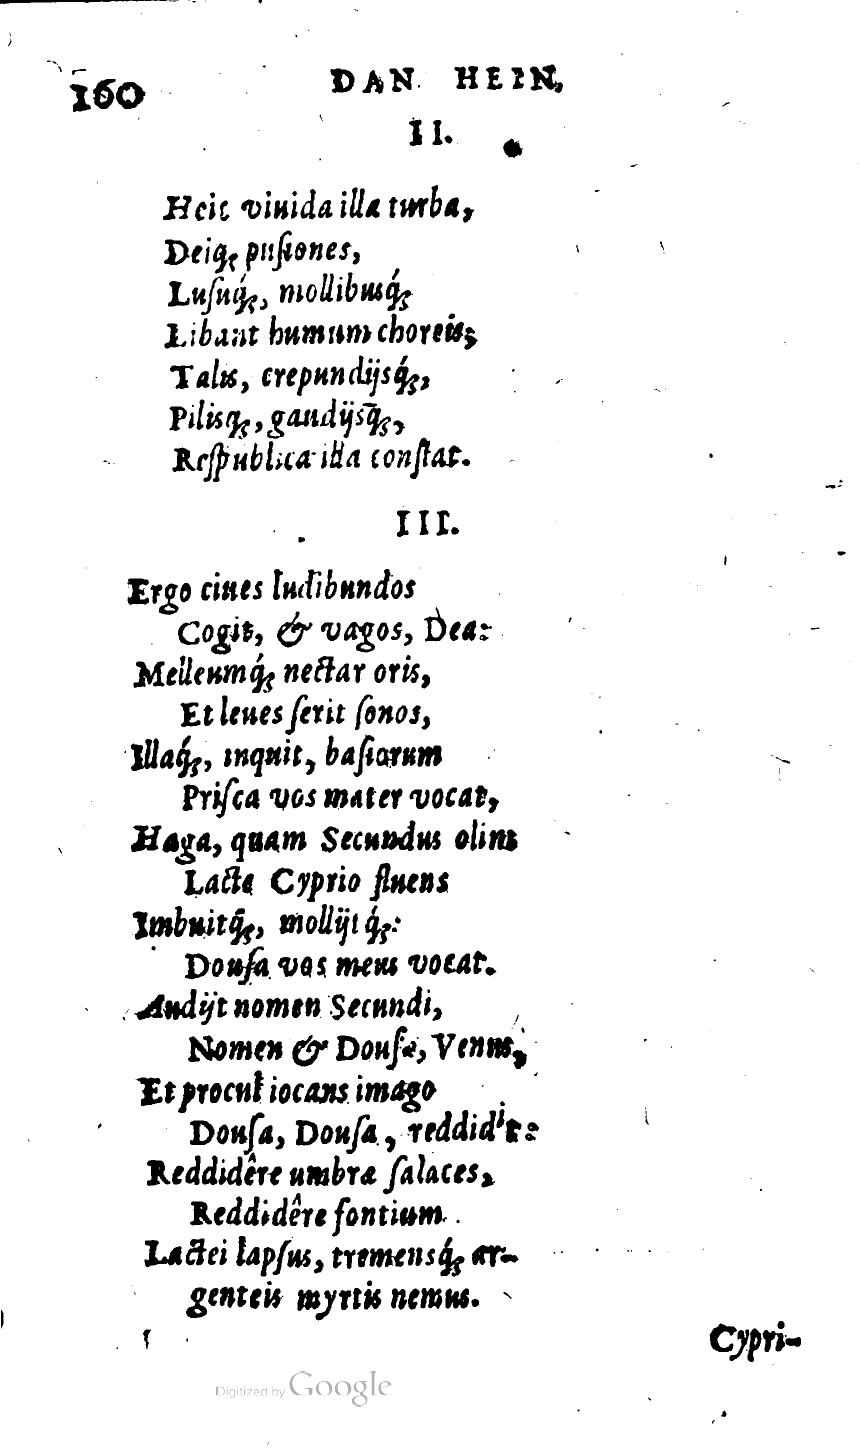 160 DAN. HEIN,
II.
Heic viuida illa turba,
Deiq; pusiones,
Lusuq́;, mollibusq́;
Libant humum choreis;
Talis, crepundijsq́;,
Pilisq;, gaudijsq̃;,
Respublica illa constat.
III.
Ergo ciues ludibundos
Cogit, & vagos, Dea:
Melleumq́; nectar oris,
Et leues serit sonos,
Illaq́;, inquit, basiorum
Prisca vos mater vocat,
Haga, quam Secundus olim
Lacte Cyprio fluens
Imbuitq̃;, mollijt q́;:
Dousa vos meus vocat.
Audijt nomen Secundi,
Nomen & Dousæ, Venus,
Et procul iocans imago
Dousa, Dousa, reddidit:
Reddidêre umbræ salaces,
Reddidêre fontium.
Lactei lapsus, tremensq́; ar-
genteis myrtis nemus.
Cypri-
Digitized by Google